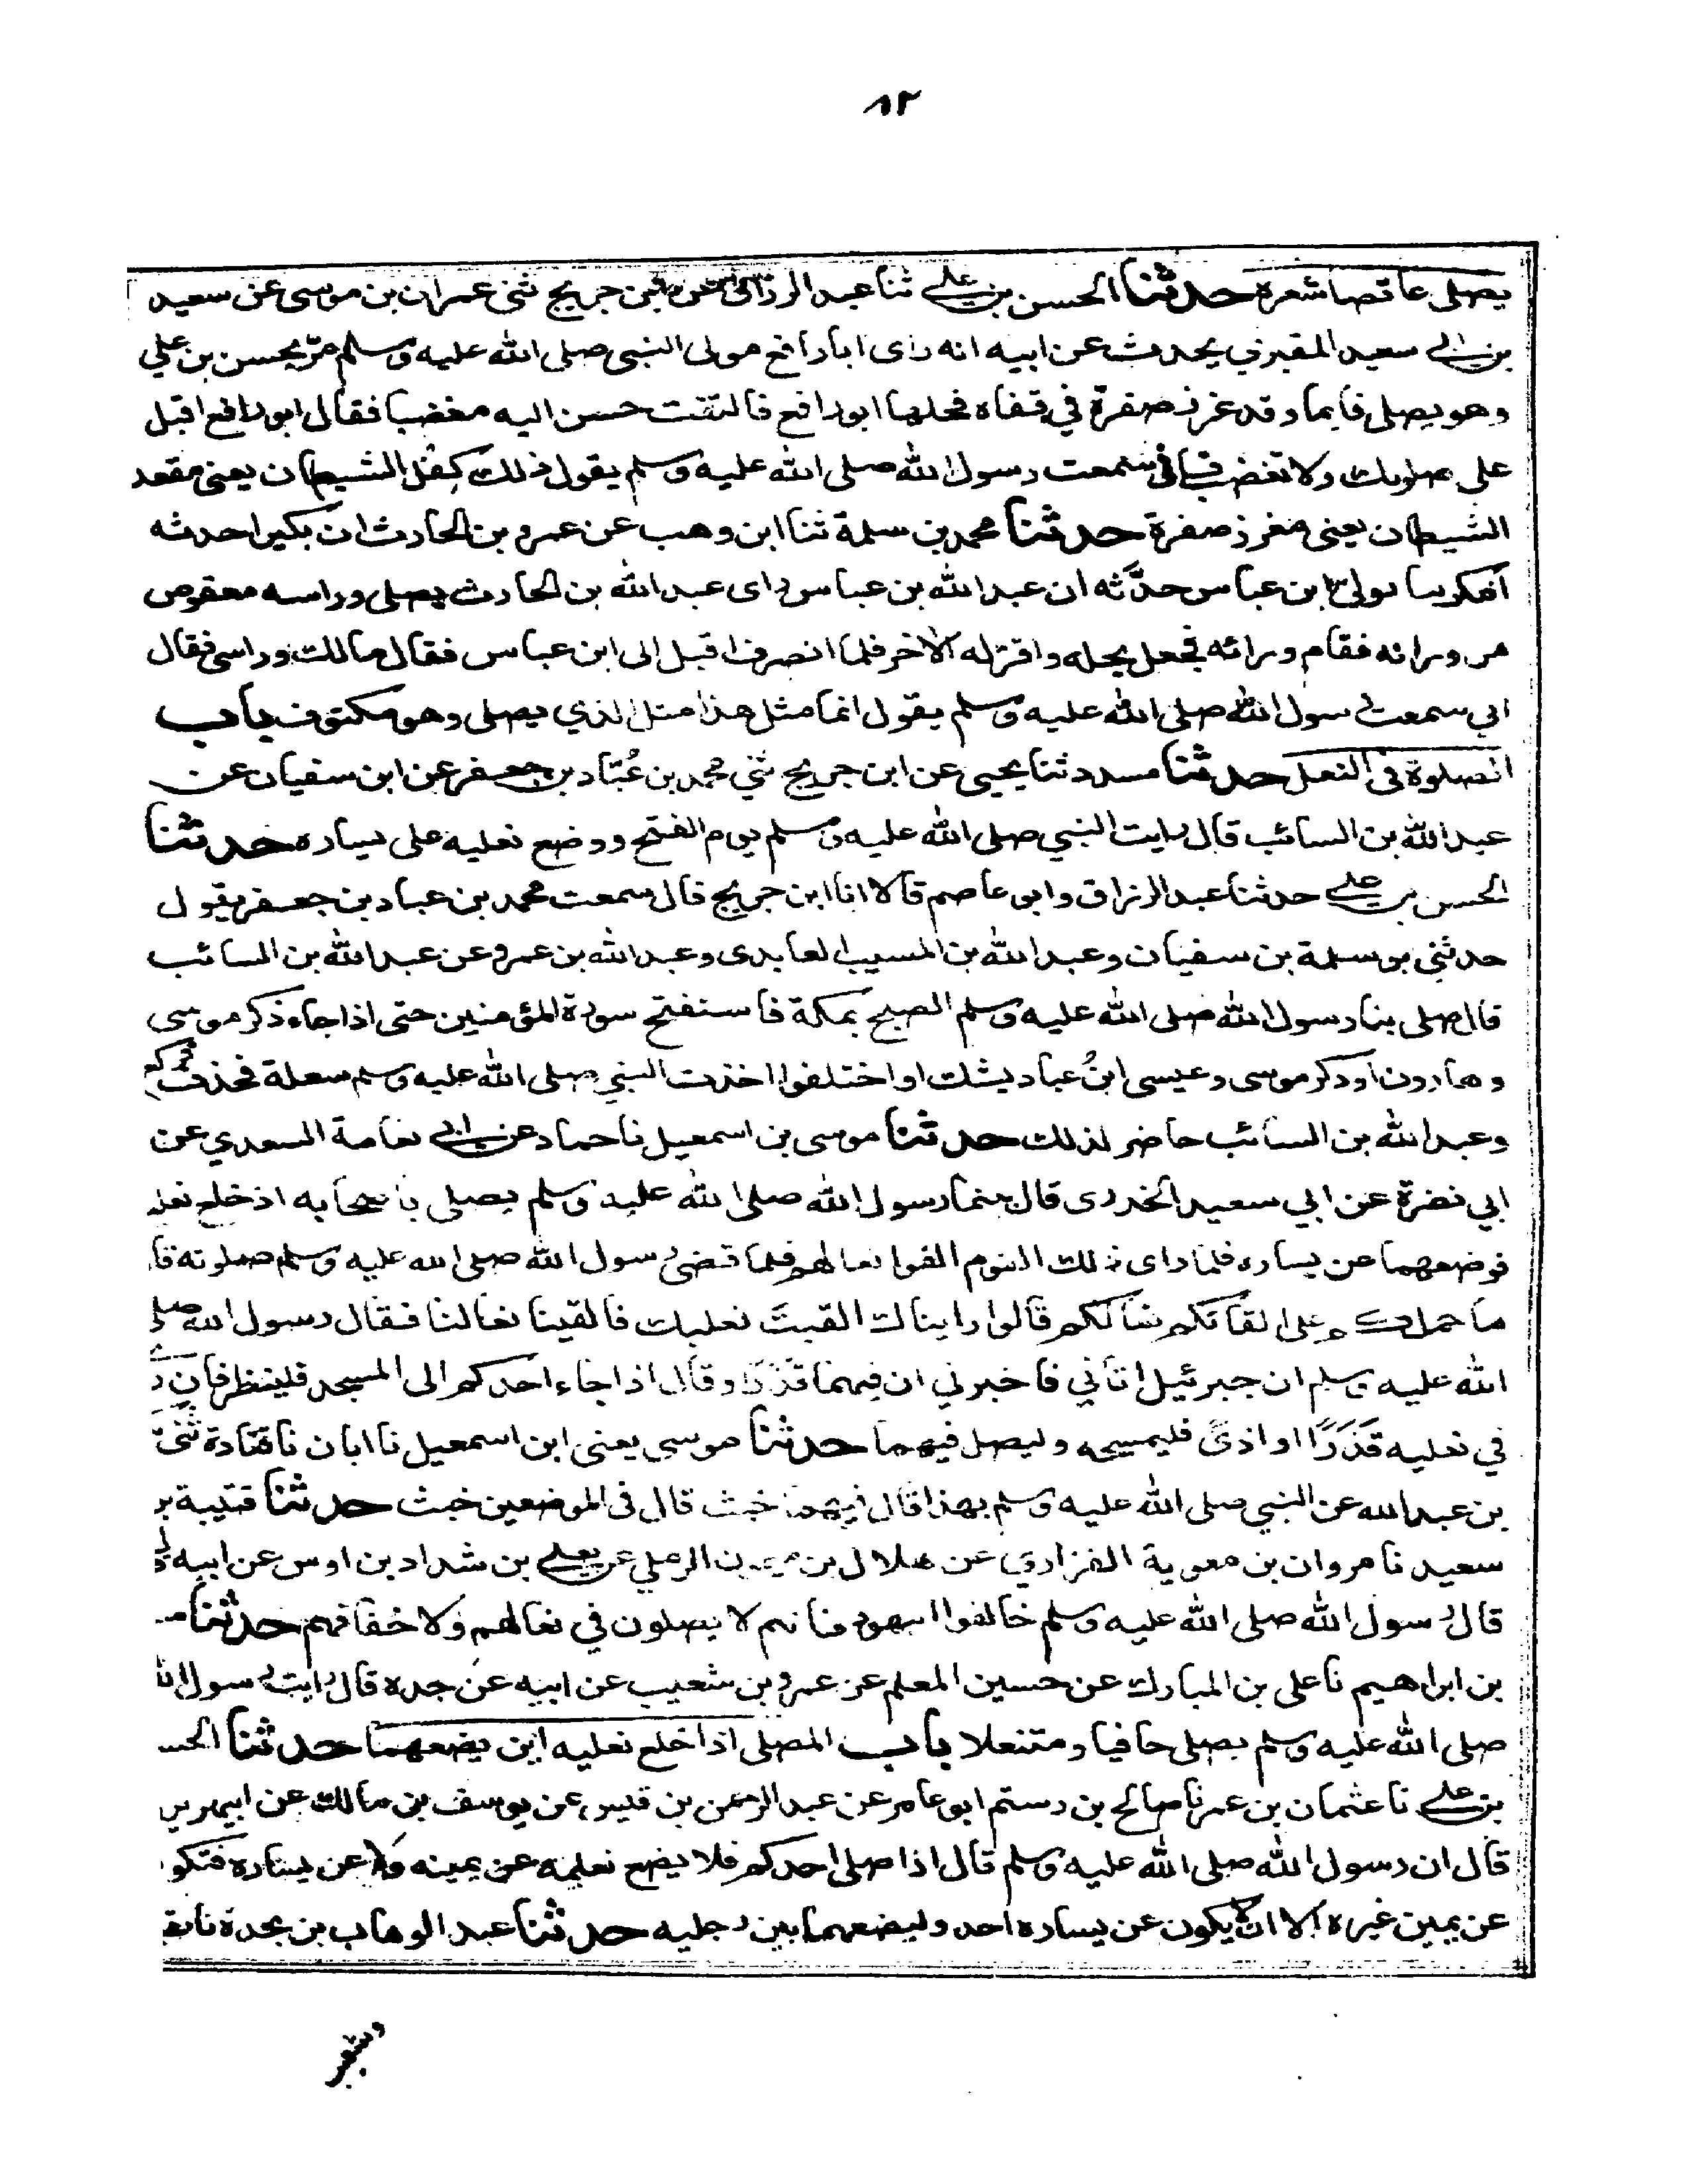 ٨٢
يصلى عاقصا شعره حدثنا الحسن بن علي ثنا عبد الرزاق عن ابن جريج ثنى عمران بن موسى عن سعيد
بن ابي سعيد المقبري يحدث عن ابيه انه راى ابا رافع مولى النبى صلى الله عليه وسلم مرّ بحسن بن علي
وهو يصلى قايما وقد غرز ضفرة في قفاه فحلها ابو رافع فالتفت حسن اليه مغضبا فقال ابو رافع اقبل
على صلوتك ولا تغضب فانى سمعت رسول الله صلى الله عليه وسلم يقول ذلك كِفْل الشيطان يعنى مقعد
الشيطان يعنى مغرز ضفرة حدثنا محمد بن سلمة ثنا ابن وهب عن عمرو بن الحارث ان بكيرا حدثه
ان كريبا مولى ابن عباس حدّثه ان عبد الله بن عباس راى عبد الله بن الحارث يصلى وراسه معقوص
من ورائه فقام ورائه فجعل يحله واقر له الآخر فلما انصرف اقبل الى ابن عباس فقال مالك وراسى فقال
اني سمعت رسول الله صلى الله عليه وسلم يقول انما مثل هذا مثل الذي يصلى وهو مكتوف باب
الصلوة فى النعل حدثنا مسدد ثنا يحيى عن ابن جريج ثني محمد بن عُبّاد بن جعفر عن ابن سفيان عن
عبد الله بن السائب قال رايت النبي صلى الله عليه وسلم يوم الفتح ووضع نعليه على يساره حدثنا
الحسن بن علي حدثنا عبد الرزاق وابو عاصم قالا انا ابن جريج قال سمعت محمد بن عباد بن جعفر يقول
حدثني بو سلمة بن سفيان وعبد الله بن المسيب العابدى وعبد الله بن عمرو عن عبد الله بن السائب
قال صلى بنا رسول الله صلى الله عليه وسلم الصبح بمكة فاستفتح سورة المؤمنين حتى اذا جاء ذكر موسى
وهارون او ذكر موسى وعيسى ابنُ عباد يشك او اختلفوا اخذت النبي صلى الله عليه وسلم سعلة فحذف فركع
وعبد الله بن السائب حاضر لذلك حدثنا موسى بن اسمعيل نا حماد عن ابي نعامة السعدي عن
ابي نضرة عن ابي سعيد الخدرى قال بينما رسول الله صلى الله عليه وسلم يصلي باصحابه اذ خلع نعليه
فوضعهما عن يساره فلما راى ذلك القوم القوا نعالهم فلما قضى رسول الله صلى الله عليه وسلم صلوته قال
ما حملكم على القائكم نعالكم قالوا رايناك القيتَ نعليك فالقينا نعالنا فقال رسول الله صلى
الله عليه وسلم ان جبرئيل اتاني فاخبرني ان فيهما قذرًا وقال اذا جاء احدكم الى المسجد فلينظر فان راى
في نعليه قذَرًا او اذىً فليمسحه وليصل فيهما حدثنا موسى يعنى ابن اسمعيل نا ابان نا قتادة ثني
بن عبد الله عن النبي صلى الله عليه وسلم بهذا قال فيهما خبث قال فى الموضعين خبث حدثنا قتيبة بن
سعيد نا مروان بن معوية الفزاري عن هلال بن ميمون الرملي عن يعلي بن شداد بن اوس عن ابيه
قال رسول الله صلى الله عليه وسلم خالفوا اليهود فانهم لا يصلون في نعالهم ولا خفافهم حدثنا
بن ابراهيم نا على بن المبارك عن حسين المعلم عن عمرو بن شعيب عن ابيه عن جده قال رايت رسول الله
صلى الله عليه وسلم يصلى حافيا ومتنعلا باب المصلى اذا خلع نعليه اين يضعهما حدثنا الحسن
بن علي نا عثمان بن عمر نا صالح بن رستم ابو عامر عن عبد الرحمن بن قيس عن يوسف بن مالك عن ابي هريرة
قال ان رسول الله صلى الله عليه وسلم قال اذا صلى احدكم فلا يضع نعليه عن يمينه ولا عن يساره فتكون
عن يمين غيره الا ان لا يكون عن يساره احد وليضعهما بين رجليه حدثنا عبد الوهاب بن نجدة نا بقية